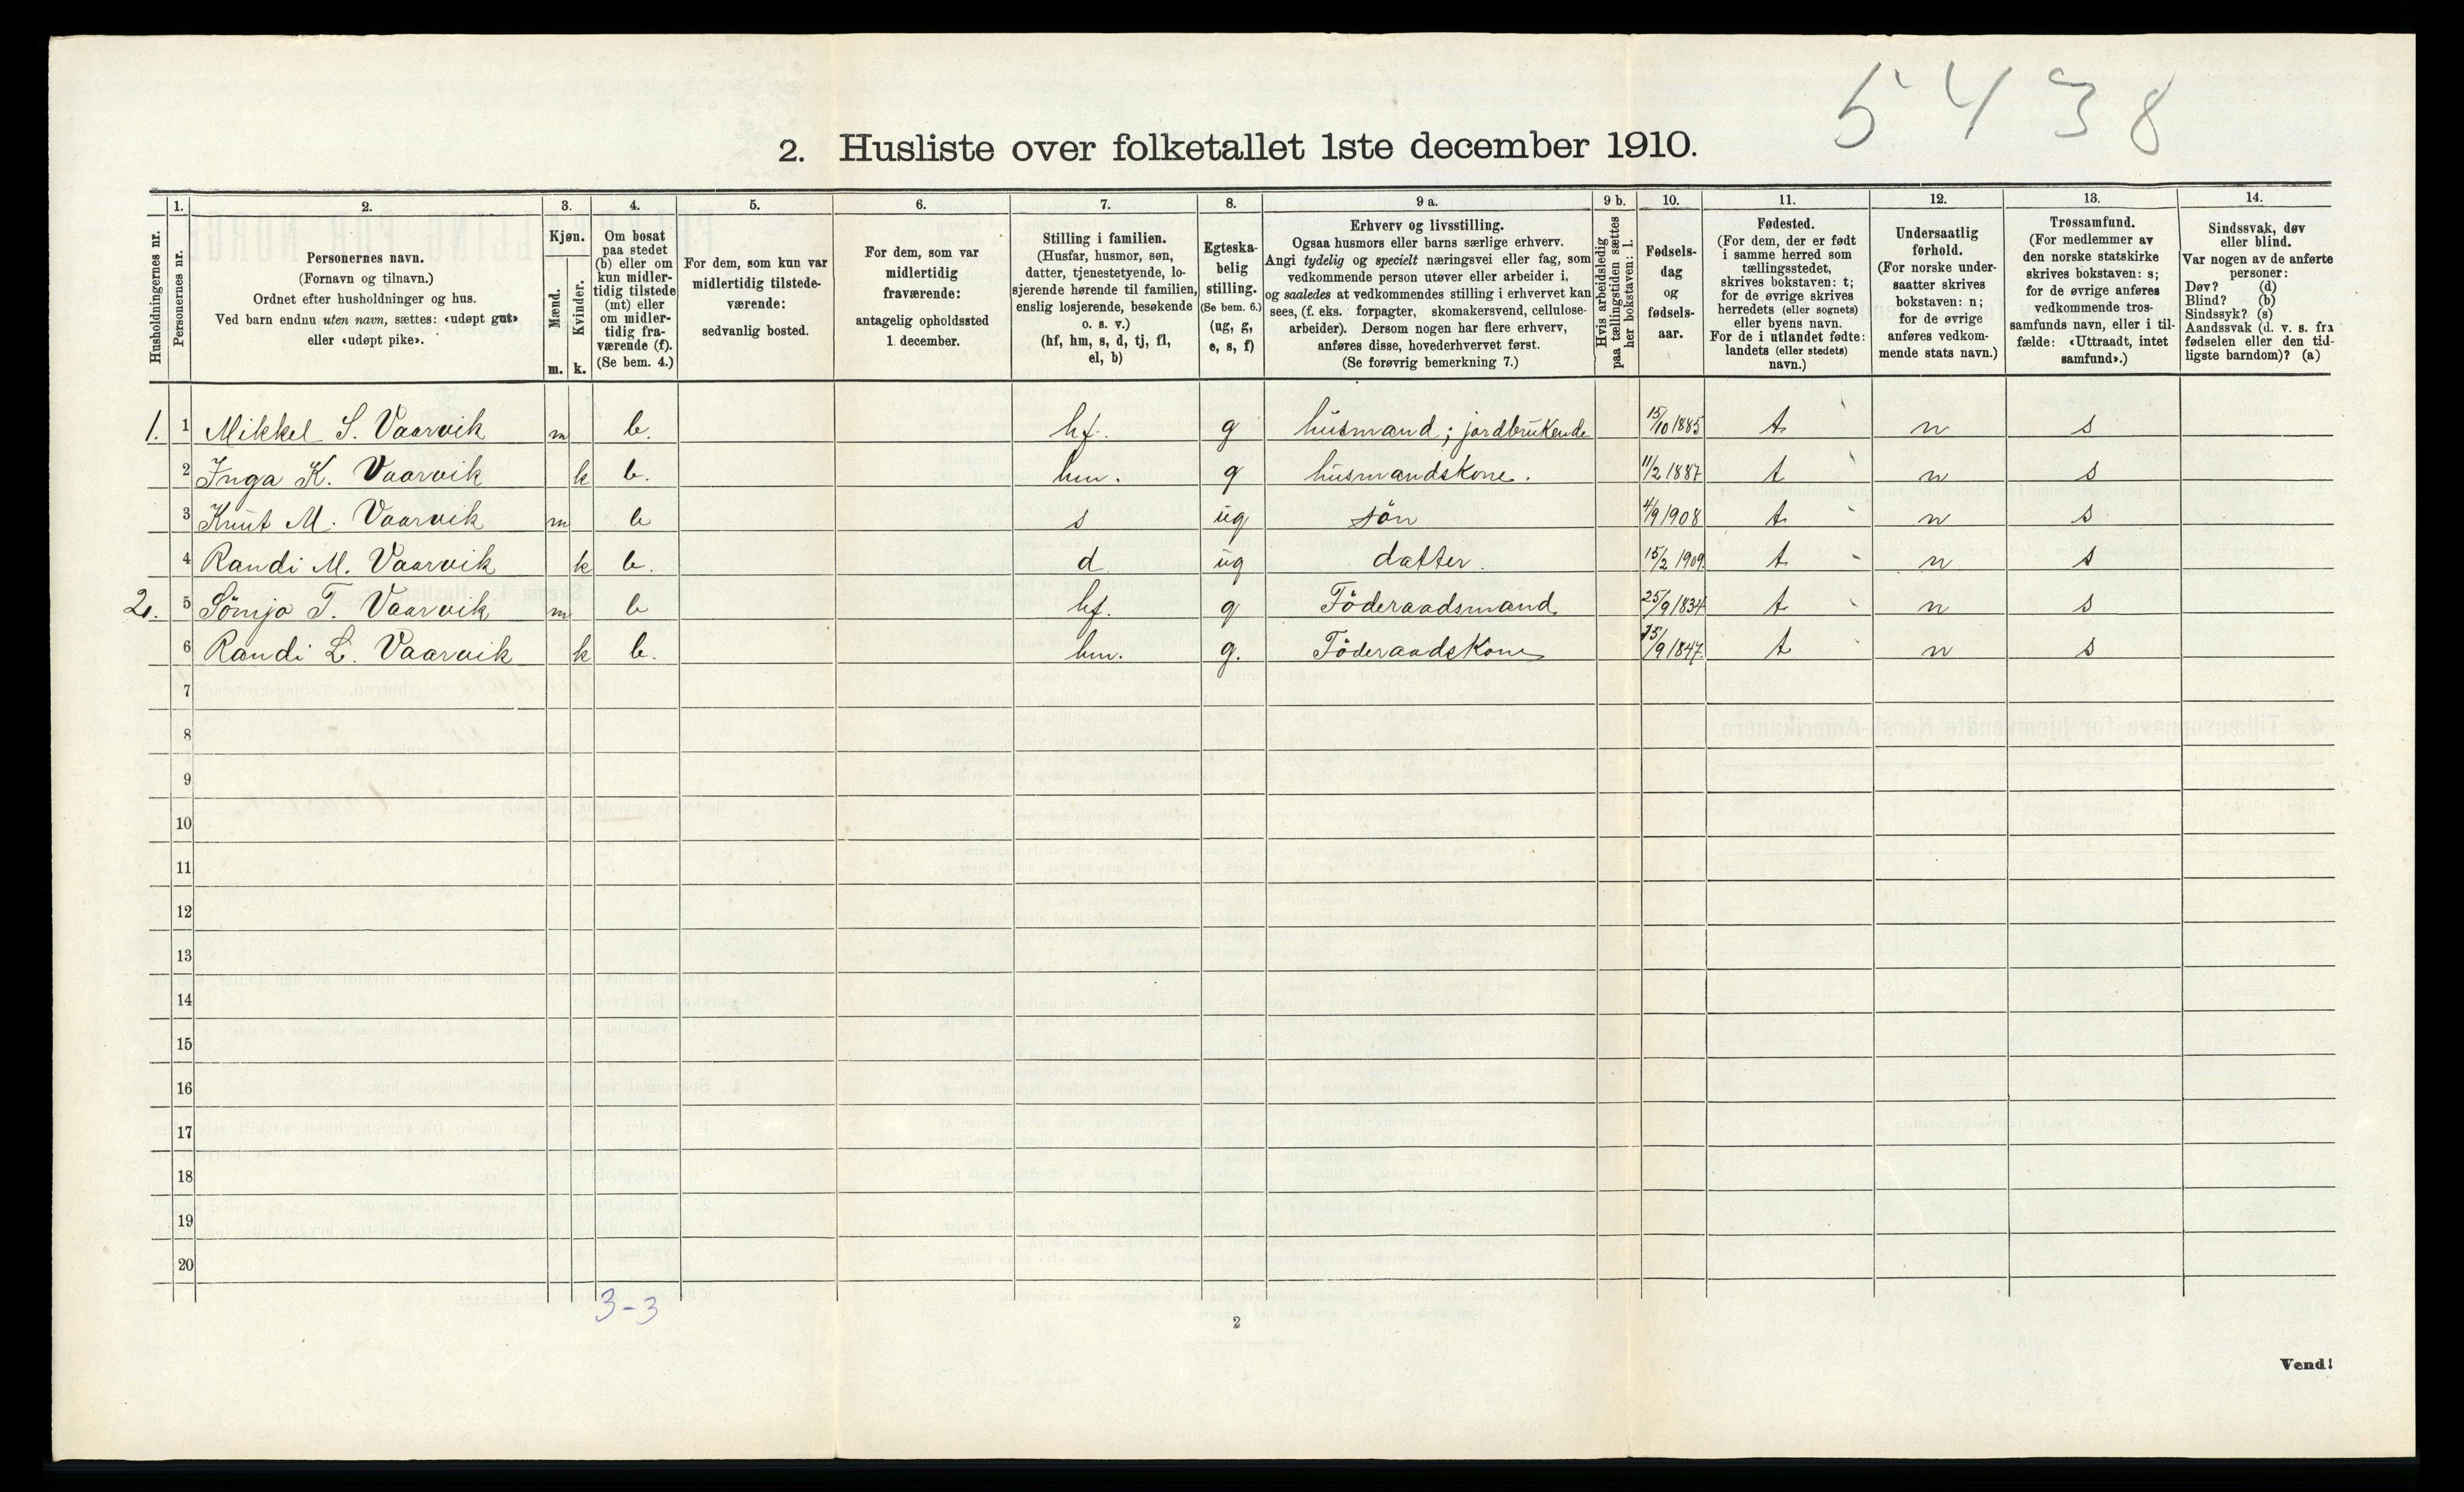 5438
2. Husliste over folketallet 1ste december 1910.
Husholdningernes nr.
1.
Personernes nr.
2.
Personernes navn.
(Fornavn og tilnavn.)
Ordnet efter husholdninger og hus.
Ved barn endnu uten navn, sættes: «udøpt gut»
eller «udøpt pike».
3.
Kjøn.
Mænd.
Kvinder.
m. k.
4.
Om bosat
paa stedet
(b) eller om
kun midler-
tidig tilstede
(mt) eller
om midler-
tidig fra-
værende (f).
(Se bem. 4.)
5.
For dem, som kun var
midlertidig tilstede-
værende:
sedvanlig bosted.
6.
For dem, som var
midlertidig
fraværende:
antagelig opholdssted
1 december.
7.
Stilling i familien.
(Husfar, husmor, søn,
datter, tjenestetyende, lo-
sjerende hørende til familien,
enslig losjerende, besøkende
o. s. v.)
(hf, hm, s, d, tj, fl,
el, b)
8.
Egteska-
belig
stilling.
(Se bem. 6.)
(ug, g,
e, s, f)
9 a.
Erhverv og livsstilling.
Ogsaa husmors eller barns særlige erhverv.
Angi tydelig og specielt næringsvei eller fag, som
vedkommende person utøver eller arbeider i,
og saaledes at vedkommendes stilling i erhvervet kan
sees, (f. eks. forpagter, skomakersvend, cellulose-
arbeider). Dersom nogen har flere erhverv,
anføres disse, hovederhvervet først.
(Se forøvrig bemerkning 7.)
9 b.
Hvis arbeidsledig
paa tællingstiden sættes
her bokstaven: l.
10.
Fødsels-
dag
og
fødsels-
aar.
11.
Fødested.
(For dem, der er født
i samme herred som
tællingsstedet,
skrives bokstaven: t;
for de øvrige skrives
herredets (eller sognets)
eller byens navn.
For de i utlandet fødte:
landets (eller stedets)
navn.)
12.
Undersaatlig
forhold.
(For norske under-
saatter skrives
bokstaven: n;
for de øvrige
anføres vedkom-
mende stats navn.)
13.
Trossamfund.
(For medlemmer av
den norske statskirke
skrives bokstaven: s;
for de øvrige anføres
vedkommende tros-
samfunds navn, eller i til-
fælde: «Uttraadt, intet
samfund».)
14.
Sindssvak, døv
eller blind.
Var nogen av de anførte
personer:
Døv? (d)
Blind? (b)
Sindssyk? (s)
Aandssvak (d. v. s. fra
fødselen eller den tid-
ligste barndom)? (a)
1. 1 Mikkel S. Vaarvik m b. hf. g husmand; jordbrukende 15/10 1885 t n s
2 Inga K. Vaarvik k b. hm. g husmandskone. 11/2 1887 t n s
3 Knut M. Vaarvik m b s ug sön 4/9 1908 t n s
4 Randi M. Vaarvik k b. d ug datter. 15/2 1909. t n s
2. 5 Sömjo T. Vaarvik m b hf. g Föderaadsmand 25/9 1834 t n s
6 Randi L. Vaarvik k b. hm. g. Föderaadskone /9 1847. t n s
7
8
9
10
11
12
13
14
15
16
17
18
19
20
3-3
2
Vend!